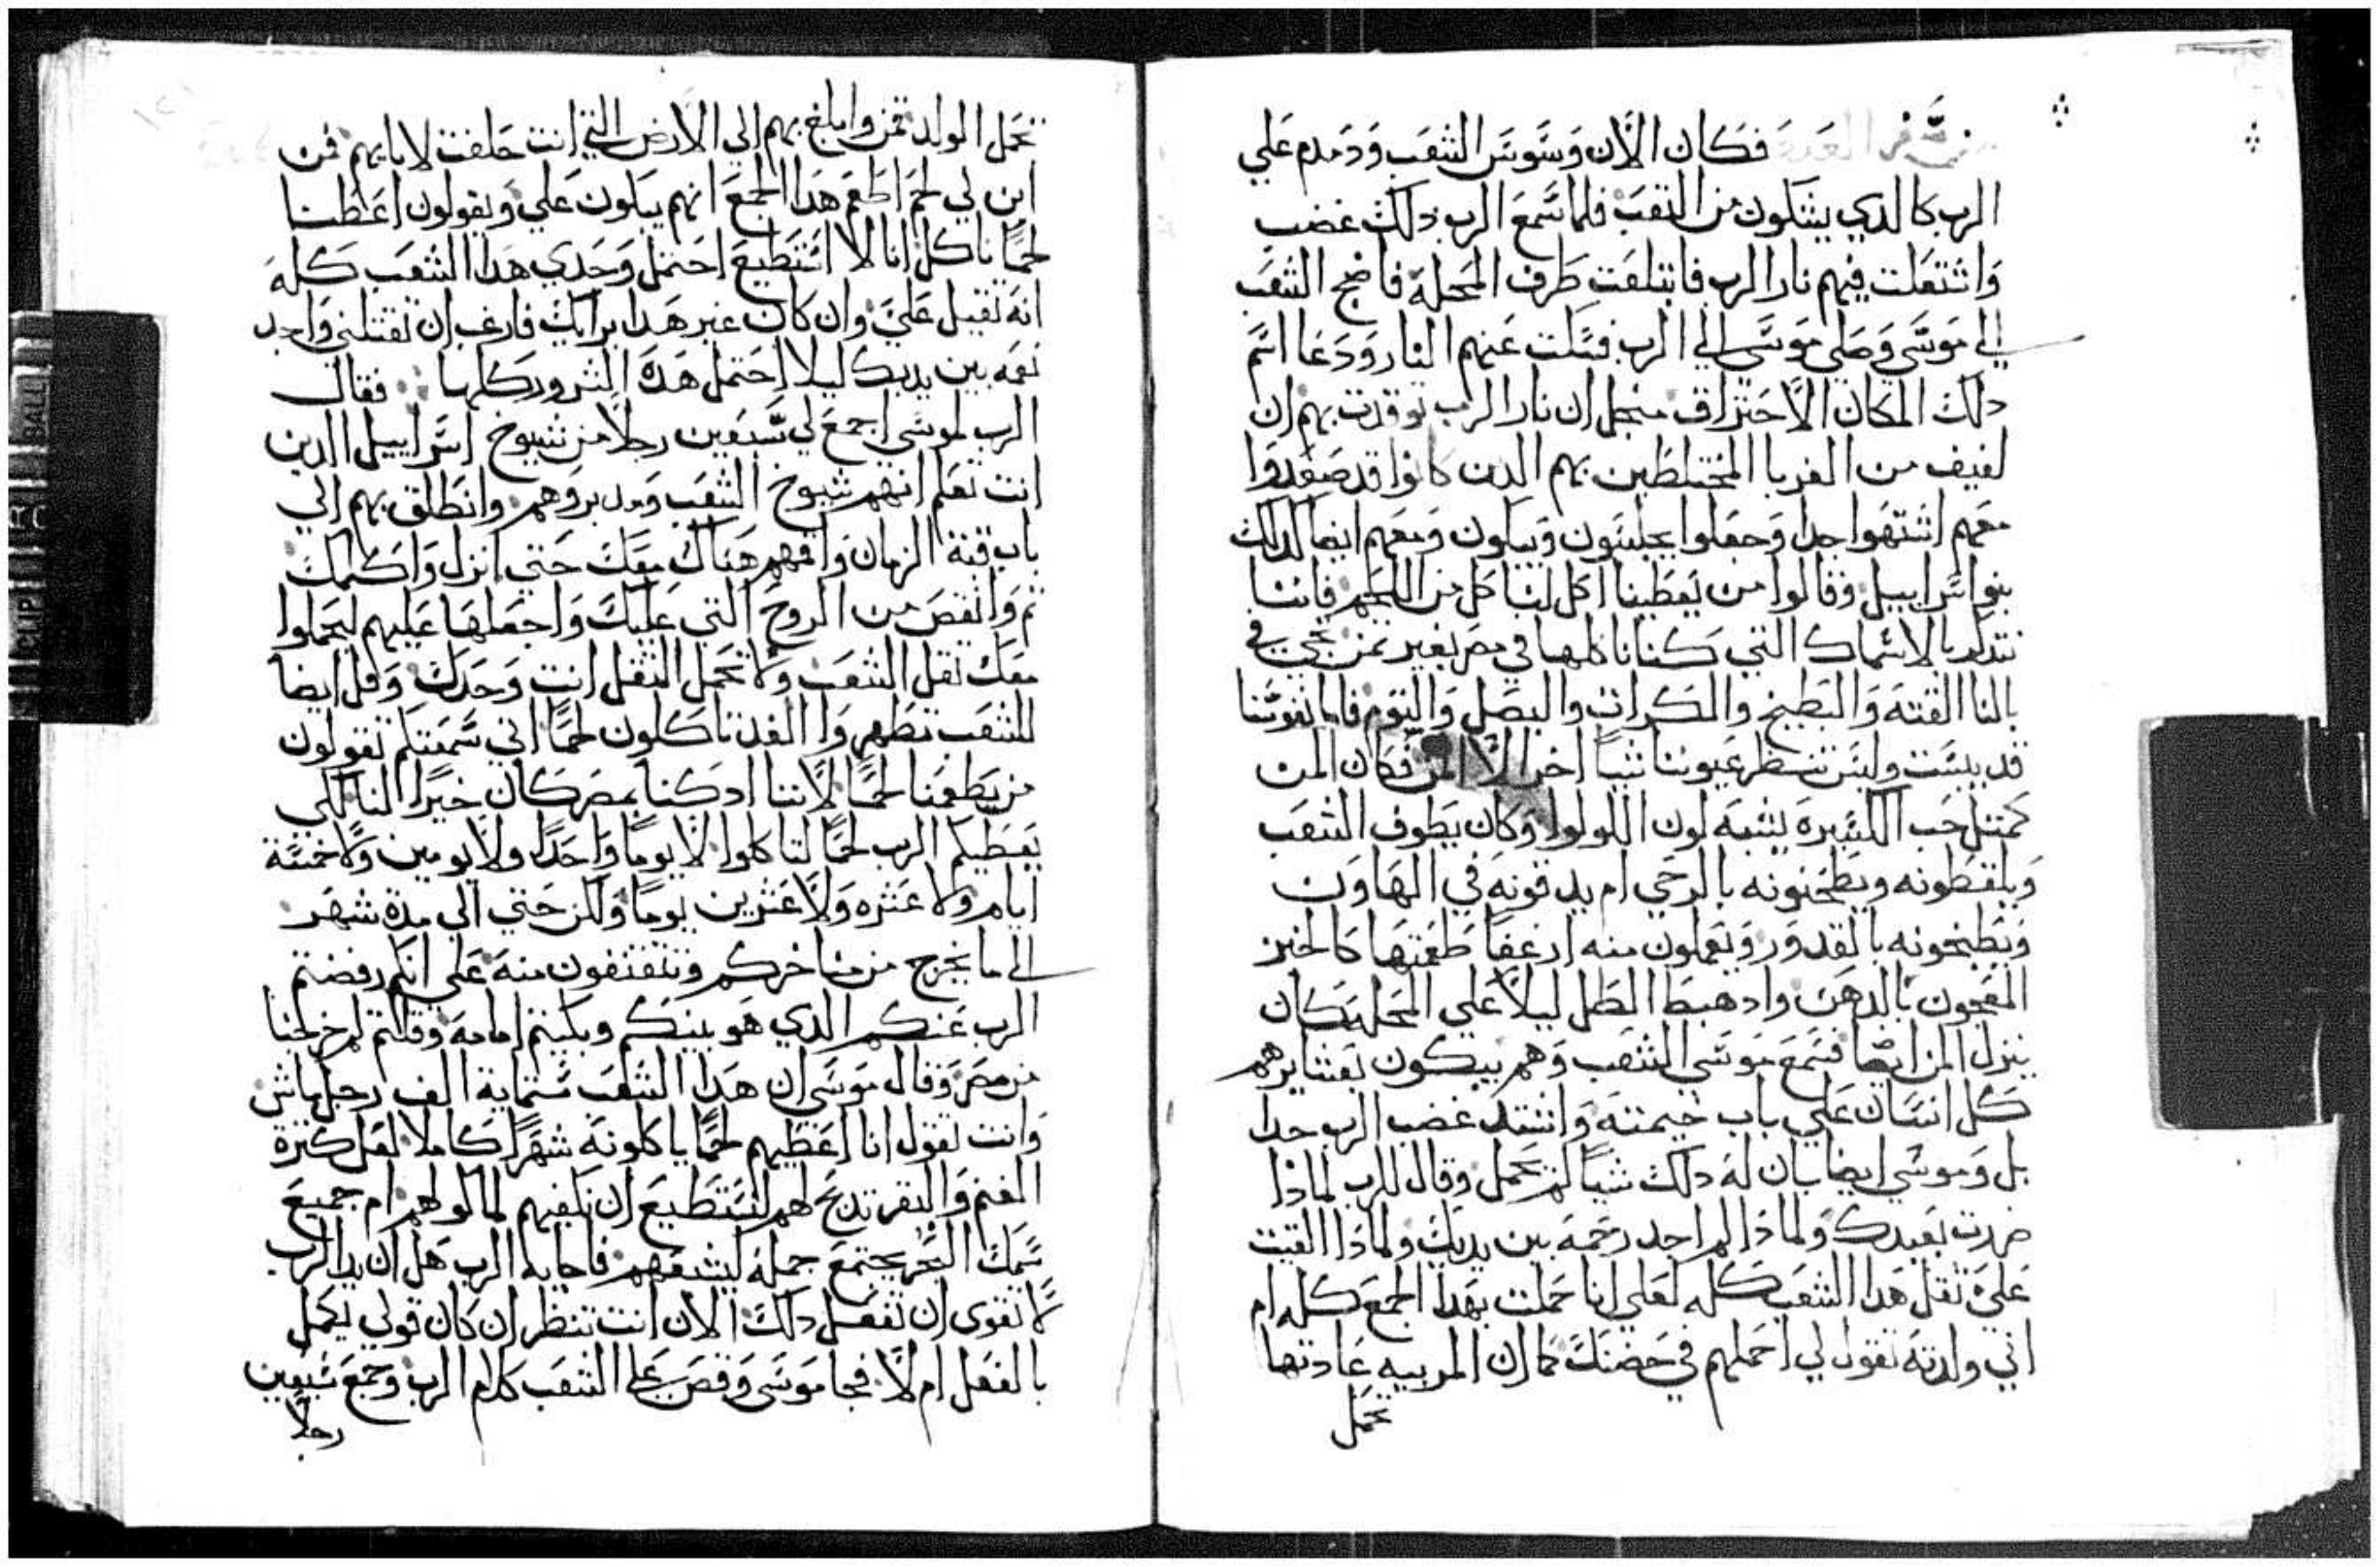 من سفر العدد فكان الان وسوس الشعب ودمدم علي
الرب كالدي يشكون من التعب فلما سمع الرب دلك غضب
واشتعلت فيهم نار الرب فابتلعت طرف المحلة فاضج الشعب
الي موسي وصلي موسي الي الرب فسكت عنهم النار ودعا اسم
دلك المكان الاحتراق منجل ان نار الرب توقدت بهم ان
لفيف من الغربا المختلطين بهم الدين كانوا قد صعدوا
معهم اشتهوا جدا وجعلوا يجلسون ويبكون ومعهم ايضا كدلك
بنوا سراييل وقالوا من يعطينا اكل لناكل من اللحم فاننا
نتدكر بالاسماك التي كنا ناكلها في مصر بغير تمن يجي في
بالنا القته والبطيخ والكرات والبصل والتوم فاما نفوسنا
قد يبست وليس تنظر عيوننا شيا اخر الا المن فكان المن
كمتل حب الكسبره يشبه لون اللولوا وكان يطوف الشعب
ويلقطونه ويطحنونه بالرحي ام يدقونه في الهاون
ويطبخونه بالقدور ويعملون منه ارغفا طعمتها كالخبز
المعجون بالدهن وادا هبط الطل ليلا علي المحله كان
ينزل المن ايضا فسمع موسي الشعب وهم يبكون بعشايرهم
كل انسان علي باب خيمته واشتد غضب الرب جدا
بل وموسي ايضا بان له دلك شيا لم يحمل وقال للرب لمادا
ضررت بعبدك ولمادا لم اجد رحمة بين يديك ولمادا القيت
علي تقل هدا الشعب كله لعلي انا حملت بهدا الجمع كله ام
اني ولدته تقول لي احملهم في حضنك كما ان المربيه عادتها
تحمل
تحمل الولد تمن وابلغ بهم الي الارض التي انت حلفت لابايهم فمن
اين لي لحم اطعم هدا الجمع انهم يبكون علي ويقولون اعطنا
لحما ناكل انا لا استطيع احتمل وحدي هدا الشعب كله
انه تقيل علي وان كان غير هدا برايك فارغب ان تقتلني واجد
نعمه بين يديك ليلا احتمل هده الشرور كلها فقال
الرب لموسي اجمع لي سبعين رجلا من شيوخ اسراييل الدين
انت تعلم انهم شيوخ الشعب ومدبروهم وانطلق بهم الي
باب قبة الزمان واقمهم هناك معك حتي انزل واكلمك
تم وانقص من الروح التي عليك واجعلها عليهم ليحملوا
معك تقل الشعب ولا تحمل التقل انت وحدك وقل ايضا
للشعب تطهروا الغد تاكلون لحما اني سمعتكم تقولون
من يطعمنا لحما لاننا اد كنا بمصر كان خيرا لنا لكي
يعطيكم الرب لحما لتاكلوا لا يوما واحدا ولا يومين ولا خمسة
ايام ولا عشره ولا عشرين يوما ولكن حتي الي مدة شهر
الي ما يخرج من مناخركم وتتقتقون منه علي انكم رفضتم
الرب عنكم الدي هو بينكم وبكيتم امامه وقلتم لم خرجنا
من مصر وقال موسي ان هدا الشعب ستماية الف رجل ماش
وانت تقول انا اعطيهم لحما ياكلونه شهرا كاملا لعل كترة
الغنم والبقر تدبح لهم لتستطيع ان تكفيهم لماكولهم ام جميع
سمك البحر يجتمع جمله ليشبعهم فاجابه الرب هل ان يد الرب
لا تقوي ان تفعل دلك الان انت تنظر ان كان قولي يكمل
بالفعل ام لا فجا موسي وقص علي الشعب كلام الرب وجمع سبعين
رجلا